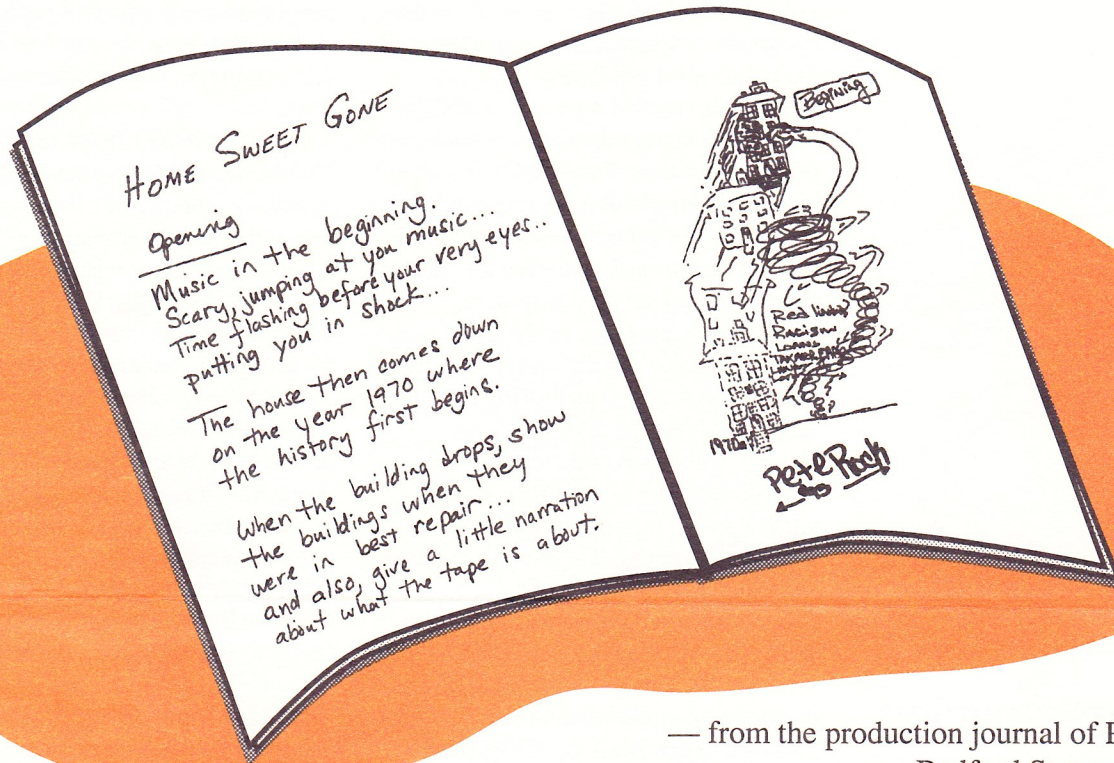 HOME SWEET GONE
Opening
Music in the beginning.
Scary, jumping at you music...
Time flashing before your very eyes..
putting you in shock...
The house then comes down
on the year 1970 where
the history first begins.
When the building drops, show
the buildings when they
were in best repair...
and also, give a little narration
about what the tape is about.
Begining
Red lining
Racism
1970s
Pete Rock
— from the production journal of